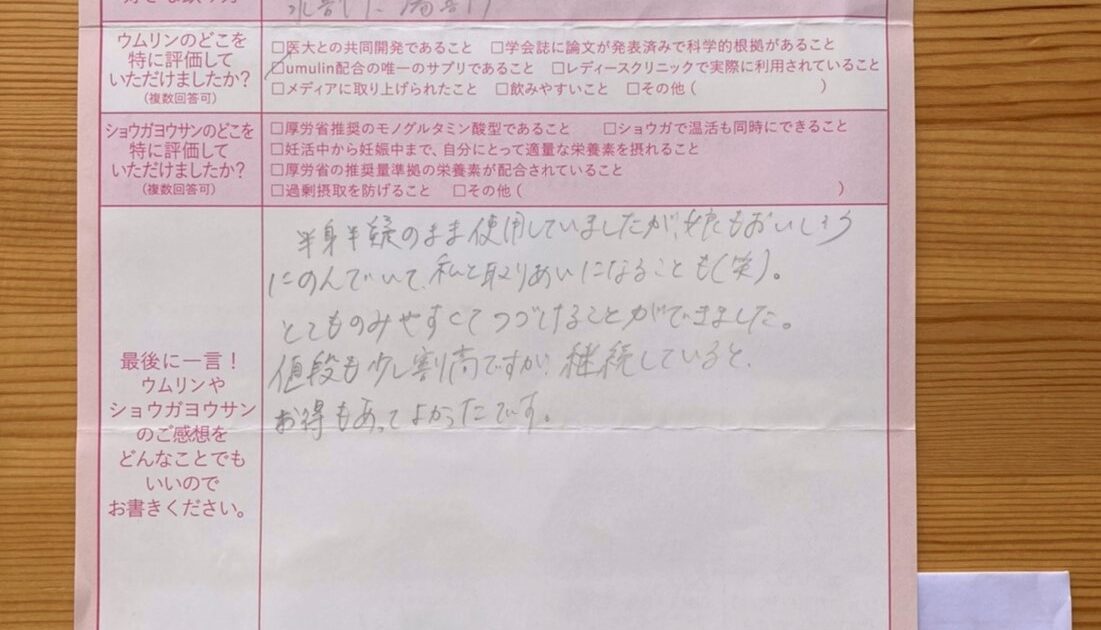 水割り、湯割り
ウムリンのどこを
特に評価して
いただけましたか?
(複数回答可)
□医大との共同開発であること □学会誌に論文が発表済みで科学的根拠があること
☑umulin配合の唯一のサプリであること □レディースクリニックで実際に利用されていること
□メディアに取り上げられたこと □飲みやすいこと □その他( )
ショウガヨウサンのどこを
特に評価して
いただけましたか?
(複数回答可)
□厚労省推奨のモノグルタミン酸型であること □ショウガで温活も同時にできること
□妊活中から妊娠中まで、自分にとって適量な栄養素を摂れること
□厚労省の推奨量準拠の栄養素が配合されていること
□過剰摂取を防げること □その他( )
最後に一言!
ウムリンや
ショウガヨウサン
のご感想を
どんなことでも
いいので
お書きください。
半身半疑のまま使用していましたが、娘もおいしそう
にのんでいて、私と取りあいになることも(笑)。
とてものみやすくてつづけることができました。
値段も少し割高ですが、継続していると、
お得もあってよかったです。